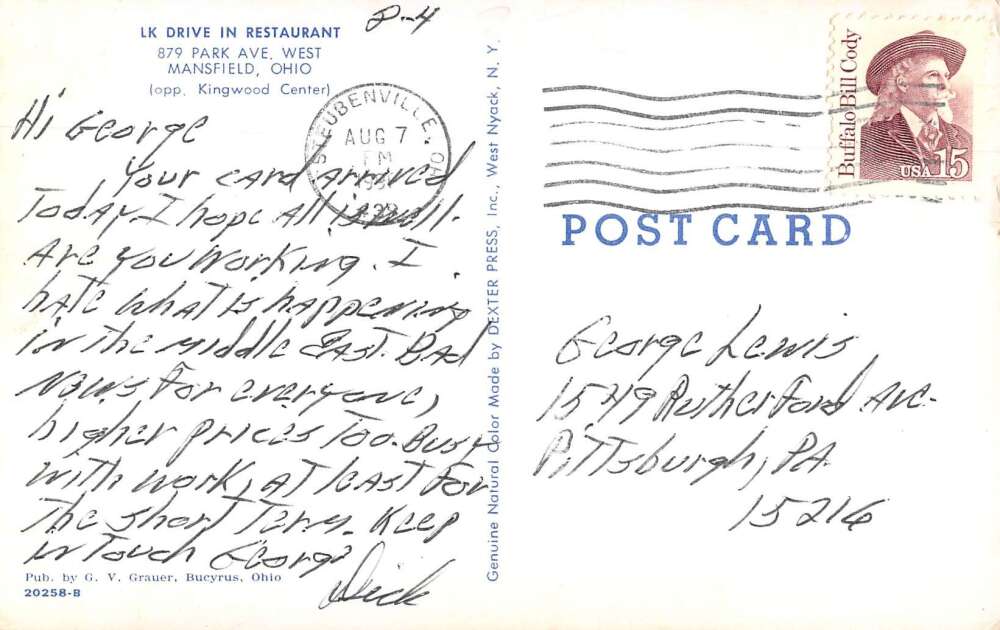 P-4
LK DRIVE IN RESTAURANT
879 PARK AVE. WEST
MANSFIELD, OHIO
(opp. Kingwood Center)
Hi George
Your card arrived
Today. I hope All is well.
Are you working. I
hate what is happening
in the Middle East. Bad
News for everyone,
higher prices Too. Busy
with work, at least for
the short Term. Keep
in Touch George
Dick
Pub. by G. V. Grauer, Bucyrus, Ohio
20258-B
Genuine Natural Color Made by DEXTER PRESS, Inc., West Nyack, N. Y.
STEUBENVILLE, OH
AUG 7
PM
Buffalo Bill Cody
USA 15
POST CARD
George Lewis
1549 Rutherford Ave.
Pittsburgh, PA.
15216